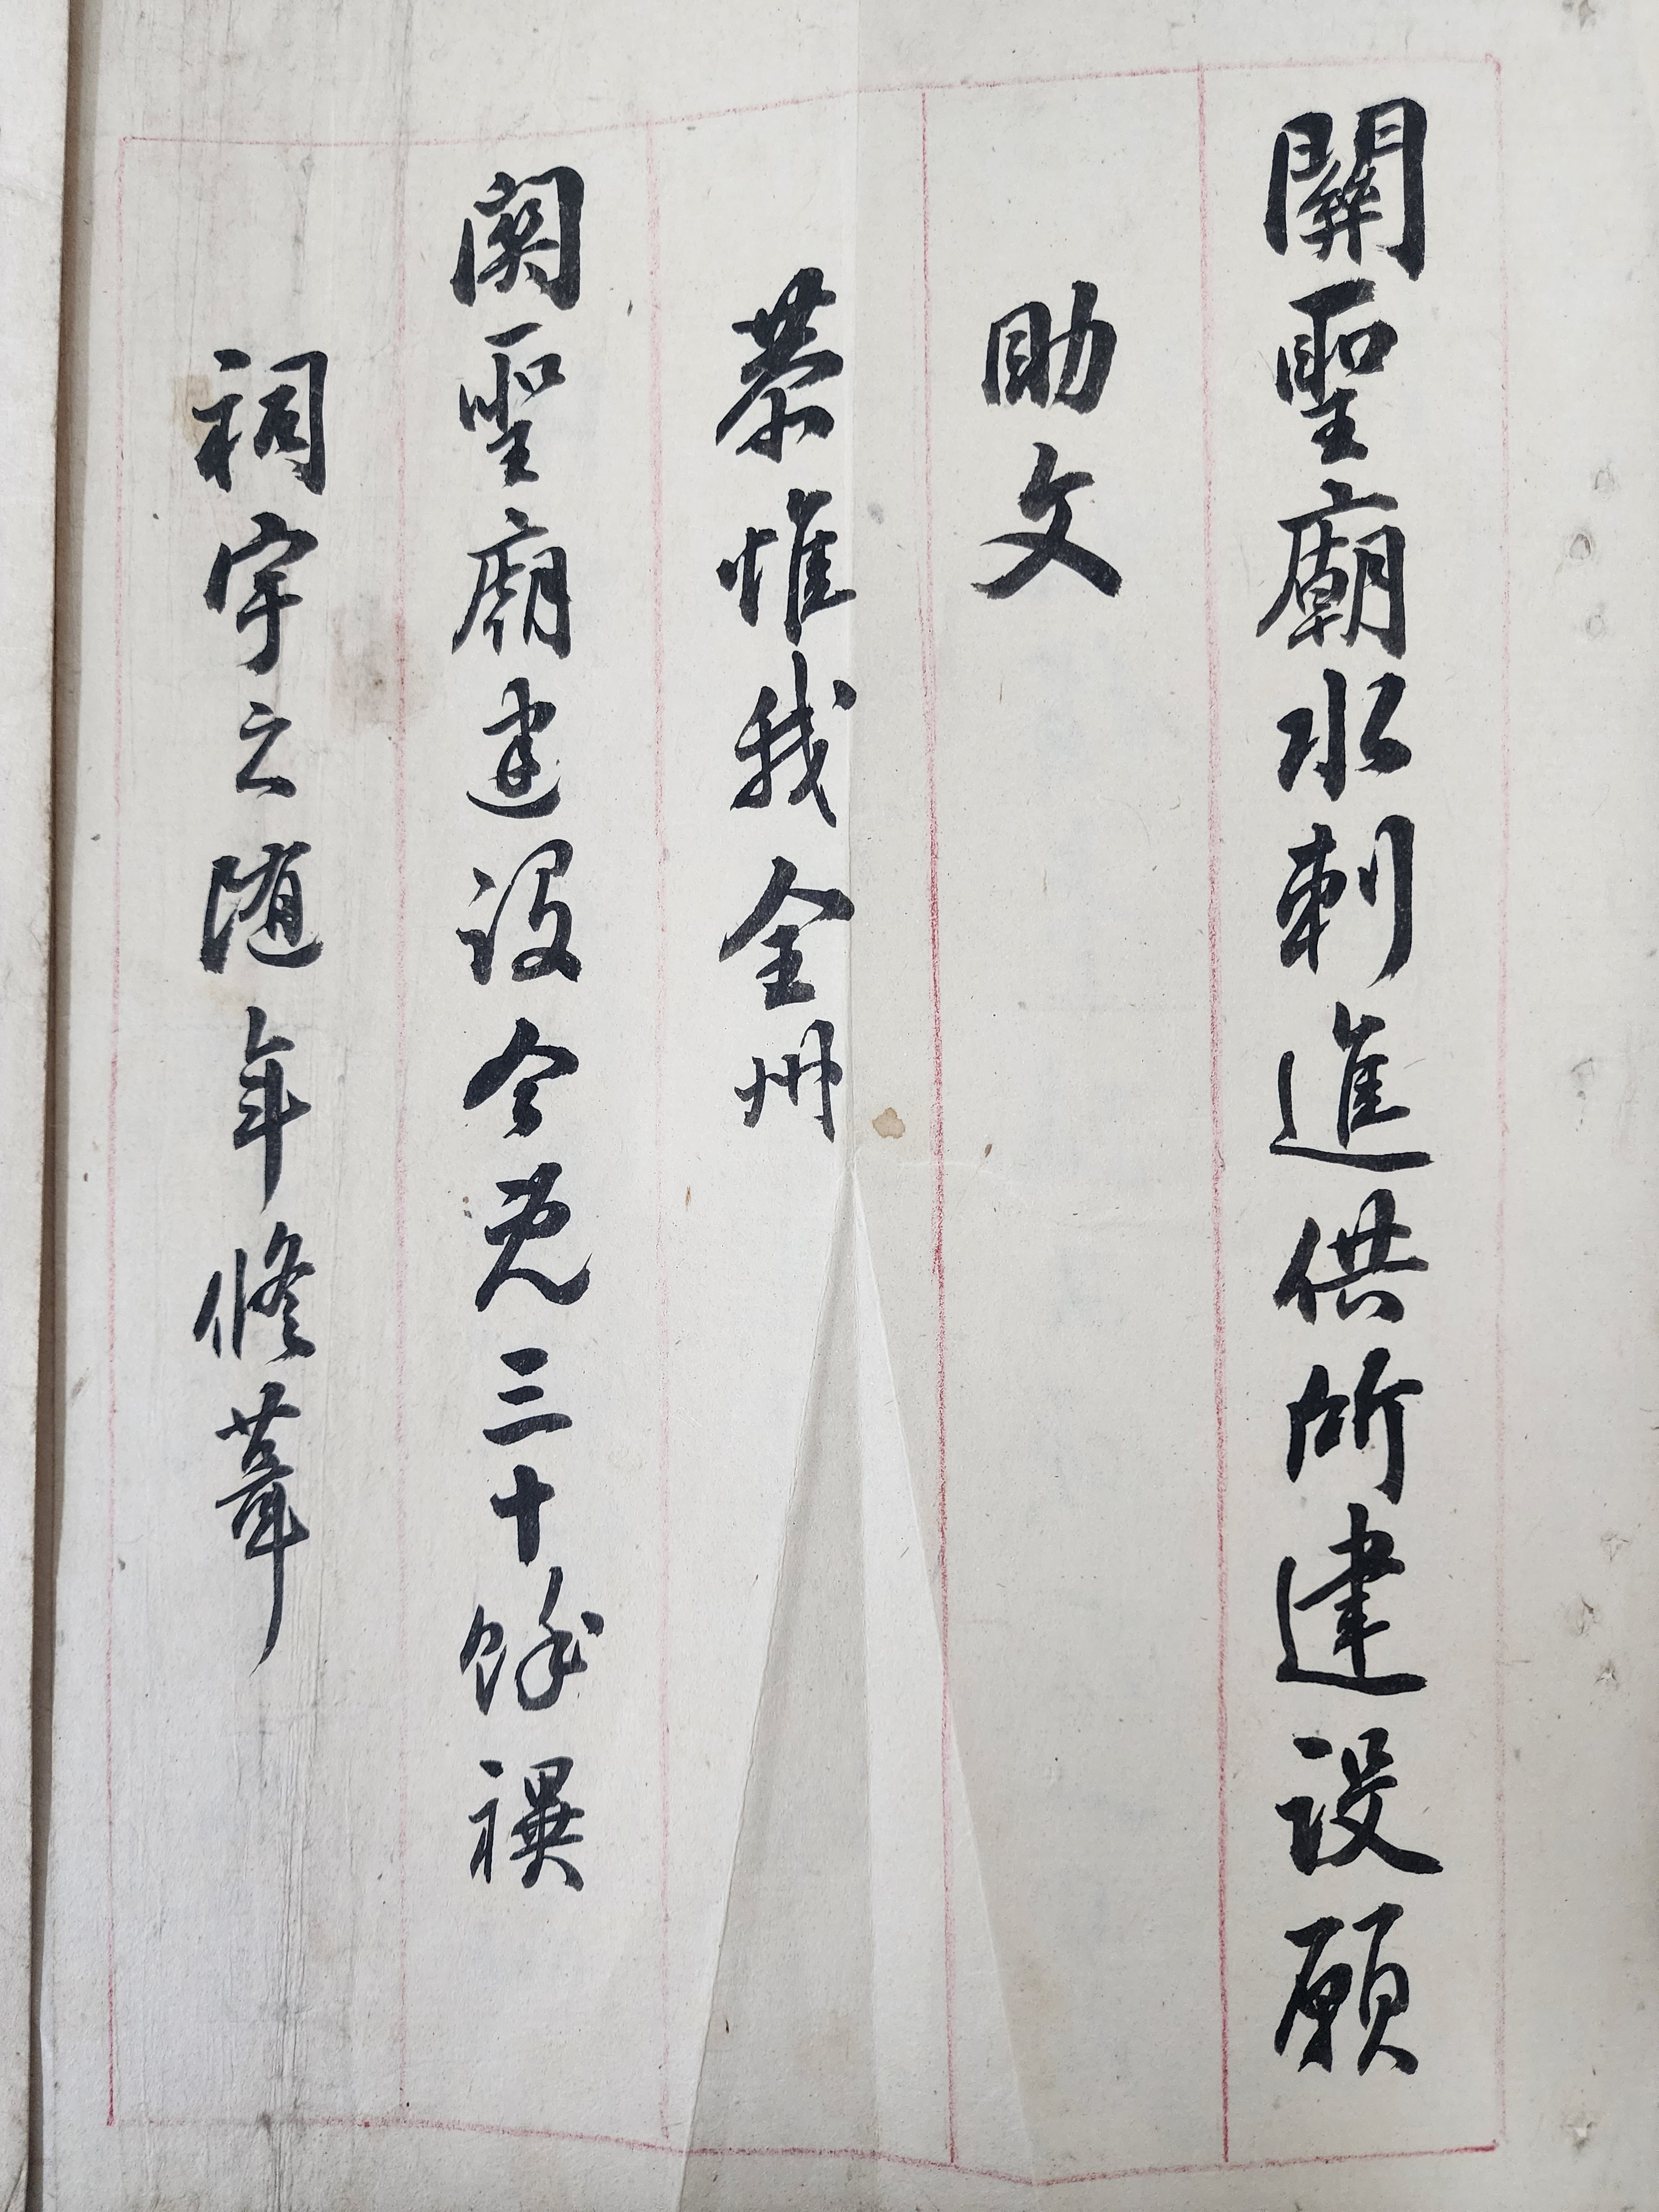 關聖廟水剌進供所建設願
助文
恭惟我全州
関聖廟建設今免三十餘禩
祠宇之随年修葺